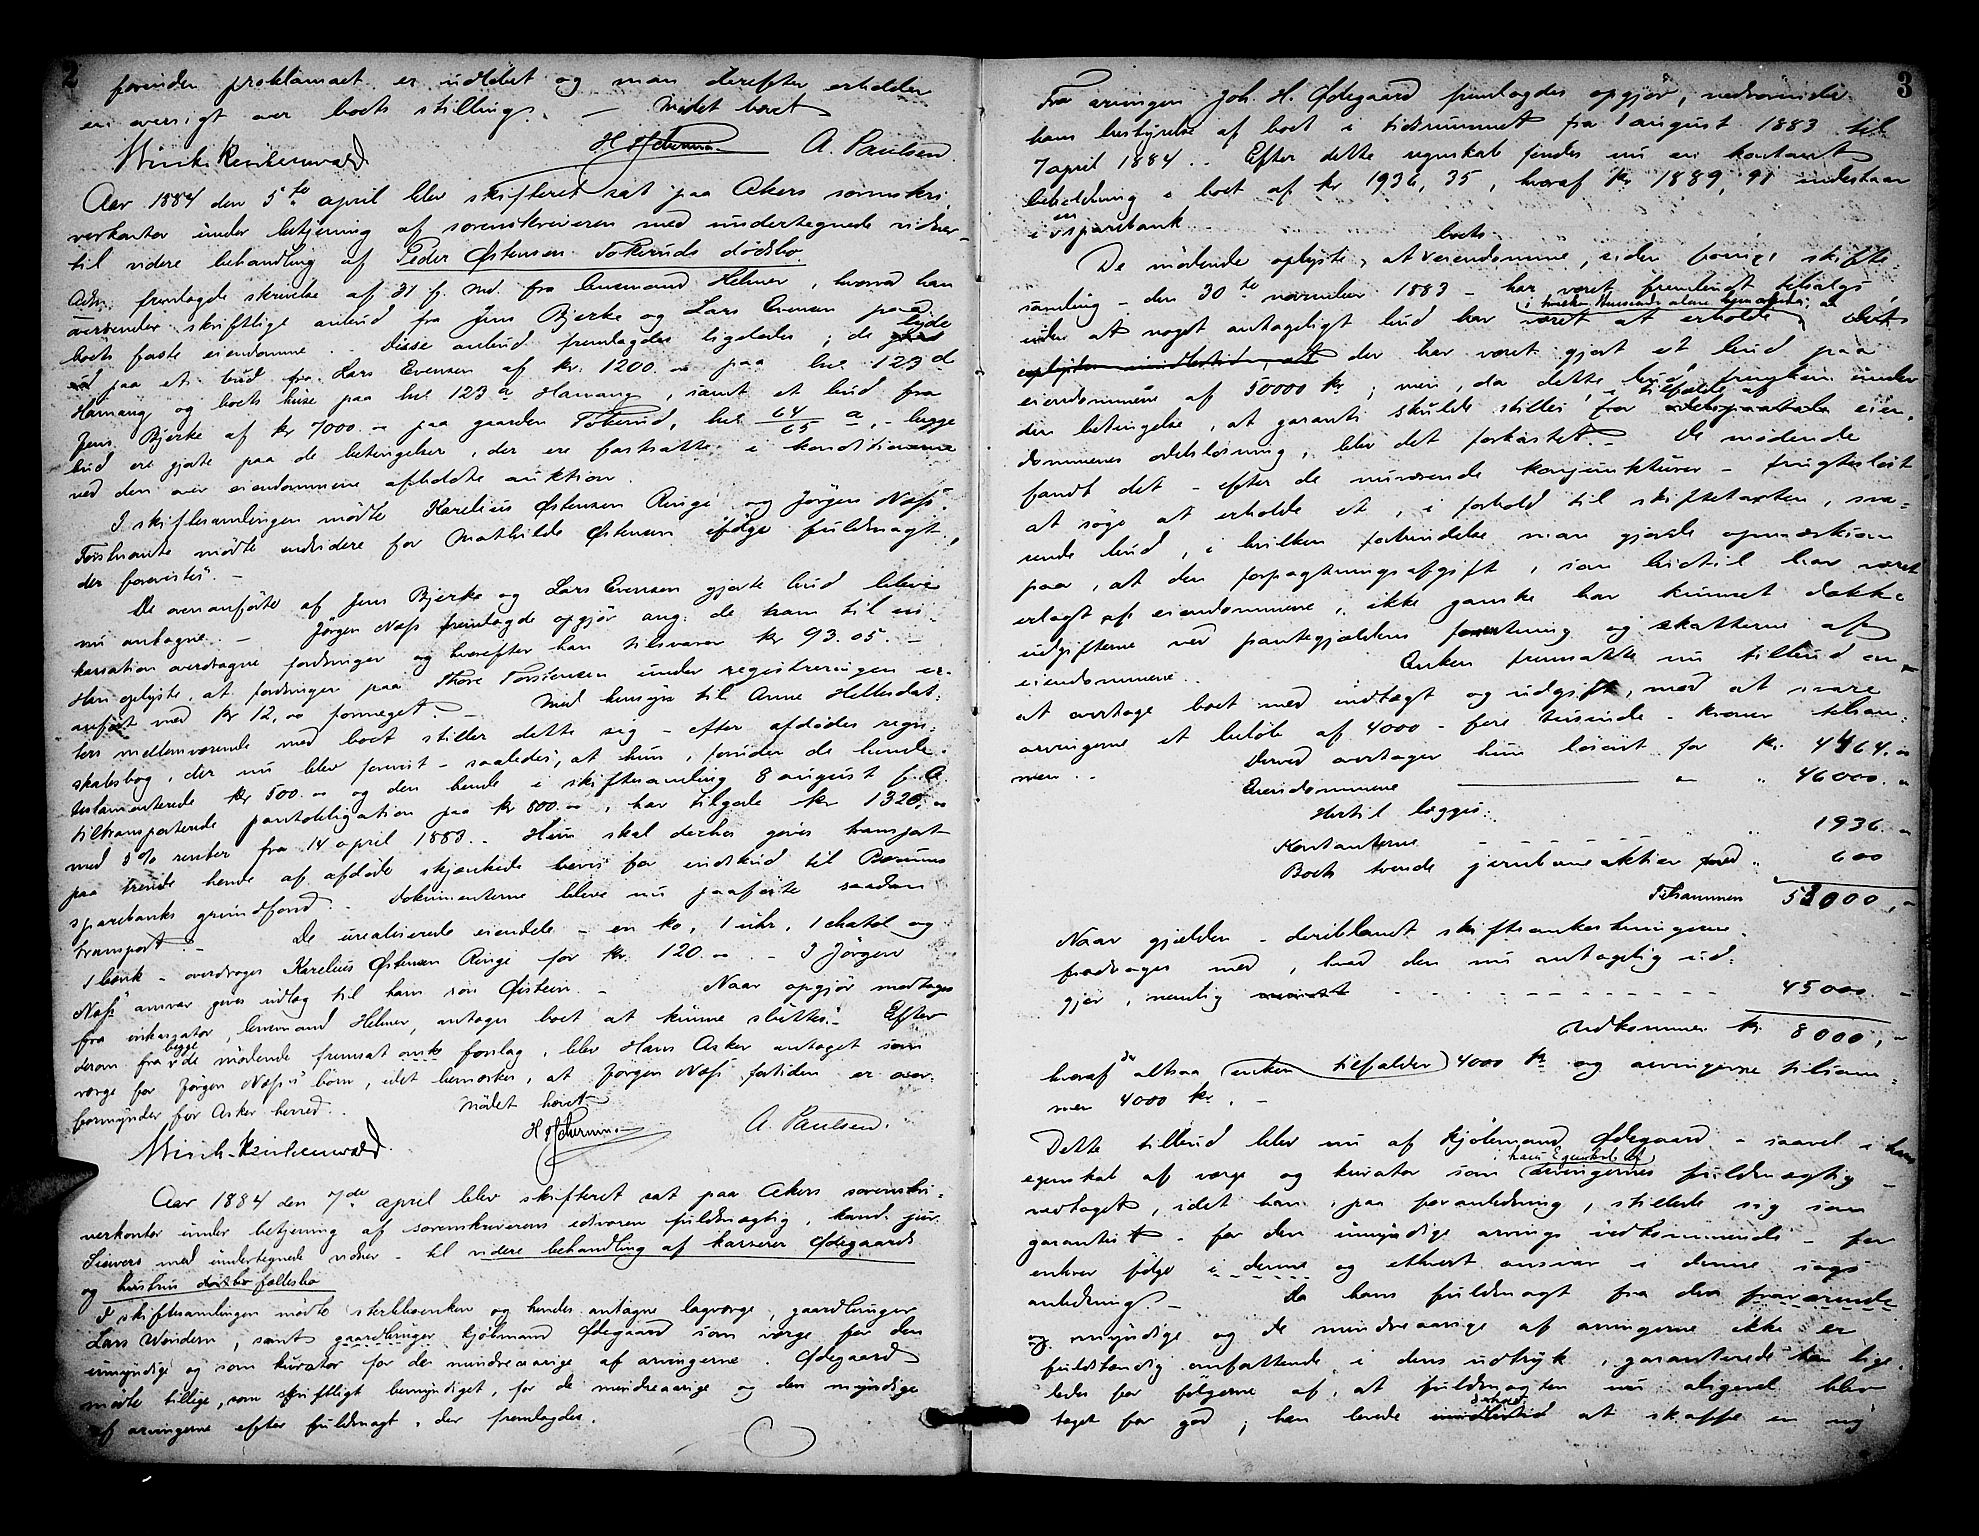 2
forinden proklamaet er udløbet og man derefter erholder
en oversigt over boets stilling. — Mødet hævet
A. Paulsen.
Aar 1884 den 5te april blev skifteret sat paa Akers sorenskri-
verkontor under betjening af sorenskriveren med undertegnede vidner –
til videre behandling af Peder Østensen Tokeruds dødsbo.
Adm. fremlagde skrivelse af 31 f. md. fra lensmand Helmer, hvorved han
oversender skriftlige anbud fra Jens Bjerke og Lars Evensen paa
boets faste eiendomme. – Disse anbud fremlagdes ligeledes; de lyde
paa et bud fra Lars Evensen af kr. 1200.00 paa lnr 123 d
Hamang og boets huse paa lnr 123 a Hamang, samt et bud fra
Jens Bjerke af kr 7000.– paa gaarden Tokerud, lnr 64/65 a, – begge
bud ere gjorte paa de betingelser, der ere fortsatte i konditionerne
ved den over eiendommene afholdte auktion.
I skiftesamlingen mødte Karelius Østensen Ringi og Jörgen Næss.
Førstnævnte mødte endvidere for Mathilde Østensen ifølge fuldmagt,
der forevistes. –
De ovenanførte af Jens Bjerke og Lars Evensen gjorte bud bleve
nu antagne. – Jörgen Næss fremlagde opgjør ang. de ham til in-
kassation overdragne fordringer og hvorefter han tilsvarer kr 93.05. –
Han oplyste, at fordringen paa Thore Torstensen under registreringen er
anført med kr 12,00 formeget. – Med hensyn til Anne Hellesdat-
ters mellemværende med boet stiller dette sig – efter afdødes regn-
skabsbog, der nu blev forevist – saaledes, at hun, foruden de hende
testamenterede kr 500.00 og den hende i skiftesamling 8 august f. A.
tiltransporterede pantobligation paa kr 800.00, har tilgode kr 1320,00
med 5% renter fra 14 april 1883. – Hun skal derhos gives transport
paa trende hende af afdøde skjænkede bevis for indskud til Bærums
sparebanks grundfond. – Dokumenterne bleve nu paaførte saadan
transport. – De urealiserede eiendele – en ko, 1 uhr, 1 chatol og
1 bænk – overdroges Karelius Østensen Ringi for kr. 120.00 – I Jörgen
Næss' ansvar gives udlæg til hans søn Østein. – Naar opgjør modtages
fra inkassator, lensmand Helmer, antages boet at kunne sluttes. – Efter
derom fra begge de mødende fremsat ønske forslag, blev Hans Asker antaget som
værge for Jörgen Næss's børn, idet bemærkes, at Jörgen Næss fortiden er over-
formynder for Asker herred. Mødet hævet
A. Paulsen.
Aar 1884 den 7de april blev skifteret sat paa Akers sorenskri-
verkontor under betjening af sorenskriverens edsvoren fuldmægtig, kand. jur.
Siewers med undertegnede vidner – til videre behandling af kasserer Ødegaards
og hustrus dødsbo fællesbo
I skiftesamlingen mødte sterkboenken og hendes antagne lagværge, gaardbruger
Lars Wendern, samt gaardbruger kjøbmand Ødegaard som værge for den
umyndige og som kurator for de mindreaarige af arvingerne. Ødegaard
mødte tillige, som skriftligt bemyndiget, for de mindreaarige og den myndige
af arvingerne efter fuldmagt, der fremlagdes.
3
Fra arvingen Joh. H. Ødegaard fremlagdes opgjør, vedrørende
hans bestyrelse af boet i tidsrummet fra 1 august 1883 til
7 april 1884. – Efter dette regnskab findes nu en kontant
beholdning i boet af kr 1936,35, hvoraf kr 1889,91 indestaar
i en sparebank.
De mødende oplyste, at boets eiendomme, siden forrige skifte-
samling – den 30te november 1883 – har været fremlendt tilsalgs,
uden at noget antageligt bud har været at erholde;
oplystes imidlertid, at der har været gjort et bud paa
eiendommene af 50000 kr; men, da dette bud fremkom under
den betingelse, at garanti skulde stilles for i tilfælde af eien-
dommenes odelsløsning, blev det forkastet. – De mødende
fandt det – efter de nuværende konjunkturer – frugtesløst
at søge at erholde et, i forhold til skiftetaxten, sva-
rende bud, i hvilken forbindelse man gjorde opmærksom
paa, at den forpagtningsafgift, som hidtil har været
erlagt af eiendommene, ikke ganske har kunnet dække
udgifterne ved pantegjældens forrentning og skatterne af
eiendommene. – Enken fremsatte nu tilbud om
at overtage boet med indtægt og udgift, mod at svare
arvingerne et beløb af 4000 – fire tusinde – kroner tilsam-
men. – Derved overtager hun løsøret for kr. 4464.00
Eiendommene — " " 46000.00
Hertil lægges:
Kontanterne – – " 1936.00
Boets tvende jernbaneaktier med " 600
Tilsammen 53000,–
Naar gjælden – deriblandt skifteomkostningerne –
fradrages med, hvad den nu antagelig ud-
gjør, nemlig – – – – – – – – – 45000.–
Udkommer kr. 8000,–
hvoraf da altsaa (enken tilfalder) 4000 kr og arvingerne tilsam-
men 4000 kr. –
Dette tilbud blev nu af kjøbmand Ødegaard – saavel i hans
egenskab af værge og kurator som i hans Egenskab af arvingernes fuldmægtig –
vedtaget, idet han, paa foranledning, stillede sig som
garantist – for den umyndige arvings vedkommende – for
enhver følge i denne og ethvert ansvar i denne sags
anledning. – Da hans fuldmagt fra den fraværende
og myndige og de mindreaarige af arvingerne ikke er
fuldstændig omfattende i dens udtryk, garanterede han lige-
ledes for følgerne af, at fuldmagten nu aligevel blev
taget for god; han lovede imidlertid at skaffe en ny